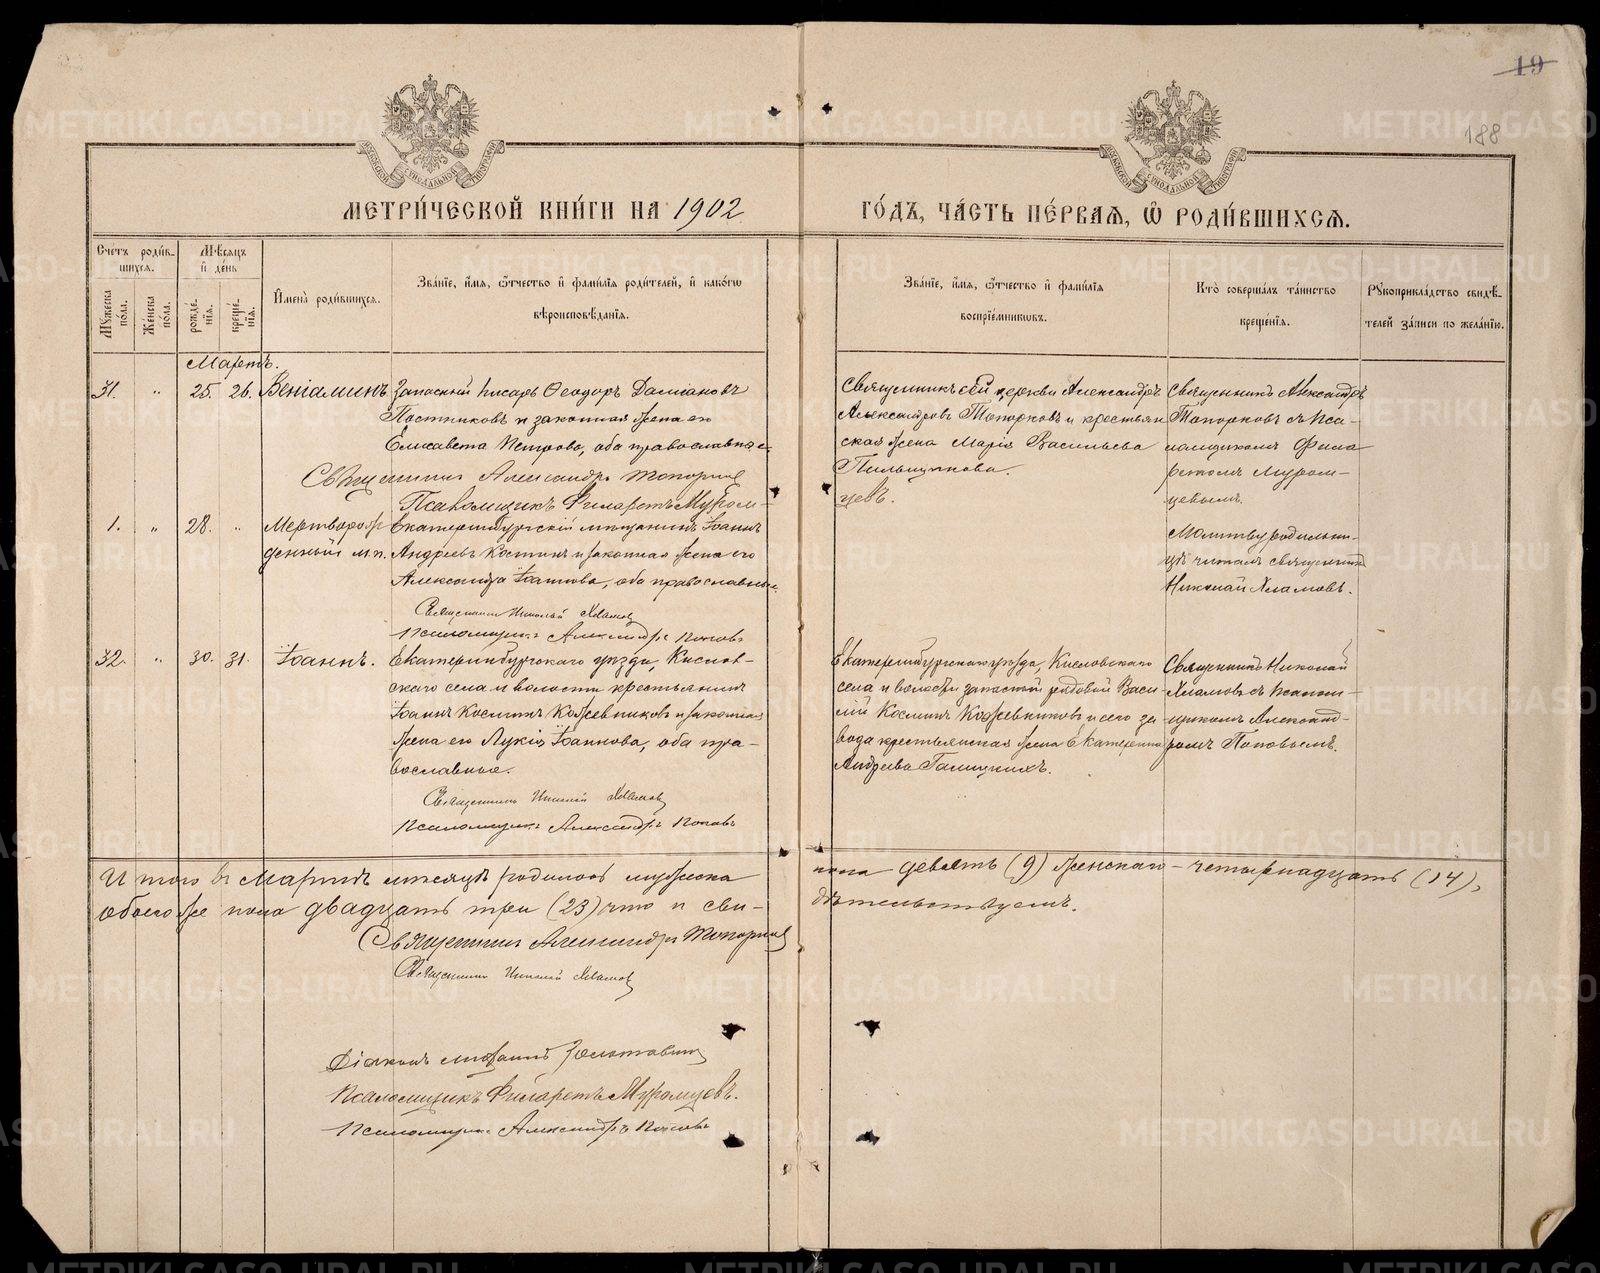 19
188
МОСКОВСКОЙ СУНОДАЛЬНОЙ ТИПОГРАФІИ
МОСКОВСКОЙ СУНОДАЛЬНОЙ ТИПОГРАФІИ
МЕТРИ́ЧЕСКОЙ КНИ́ГИ НА 1902
ГО́ДЪ, ЧА́СТЬ ПЕ́РВАѦ, Ѡ҆ РОДИ́ВШИХСѦ.
Сче́тъ роди́в-
шихсѧ.
Мѣ́сѧцъ
и҆ де́нь
Му́жеска по́ла.
Же́нска по́ла.
рожде́-нїѧ.
креще́-нїѧ.
И҆мена̀ роди́вшихсѧ.
Зва́нїе, и҆́мѧ, ѻ҆́тчество и҆ фами́лїѧ роди́телей, и҆ како́гѡ
вѣроисповѣ́данїѧ.
Зва́нїе, и҆́мѧ, ѻ҆́тчество и҆ фами́лїѧ
воспрїе́мникѡвъ.
Кто̀ соверша́лъ та́инство
креще́нїѧ.
Рꙋкоприкла́дство свидѣ́-
телей за́писи по жела́нїю.
Мартъ.
31. " 25. 26. Веніаминъ.
Запасный писарь Ѳеодоръ Даміановъ
Постниковъ и законная жена его
Елисавета Петрова, оба православные.
Священникъ Александръ Топорковъ
Псаломщикъ Филаретъ Муром-
цевъ.
Священникъ сей церкви Александръ
Александровъ Топорковъ и крестьян
ская жена Марія Васильева
Пильщикова.
Священникъ Александръ
Топорковъ съ Пса-
ломщикомъ Фила
ретомъ Муром-
цевымъ.
1. " 28. " Мертворож
денный м.п.
Екатеринбургскій мѣщанинъ Іоаннъ
Андреевъ Костинъ и законная жена его
Александра Іоаннова, оба православные.
Священникъ Николай Хламовъ
Псаломщикъ Александръ Поповъ
Молитву родильни-
цѣ читалъ священникъ
Николай Хламовъ.
32. " 30. 31. Іоаннъ.
Екатеринбургскаго уѣзда, Кислов-
скаго села и волости крестьянинъ
Іоаннъ Косминъ Кожевниковъ и законная
жена его Лукія Іоаннова, оба пра-
вославные.
Священникъ Николай Хламовъ
Псаломщикъ Александръ Поповъ
Екатеринбургскаго уѣзда, Кисловскаго
села и волости запасный рядовой Васи-
лій Косминъ Кожевниковъ и сего за-
вода крестьянская жена Екатерина
Андреева Галицкихъ.
Священникъ Николай
Хламовъ съ Псалом-
щикомъ Александ-
ромъ Поповымъ.
Итого въ Мартѣ мѣсяцѣ родилось мужеска
пола девять (9) женскаго - четырнадцать (14),
обоего же пола двадцать три (23) что и сви-
дѣтельствуемъ.
Священникъ Александръ Топорковъ
Священникъ Николай Хламовъ
Діаконъ
Псаломщикъ Филаретъ Муромцевъ.
Псаломщикъ Александръ Поповъ
METRIKI.GASO-URAL.RU